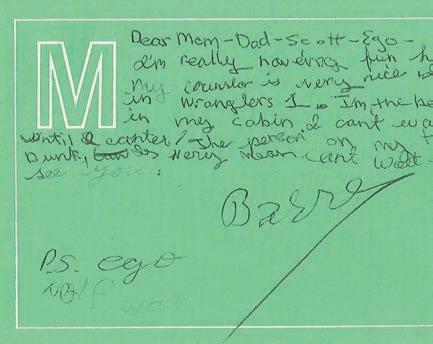 M
Dear Mom-Dad-Scott-Ego-
I'm really having fun h
My counslor is very nice
in Wranglers 1. I'm the be
in my cabin & cant wa
until I canter! The person on my t
bunk, is very mean. Cant wait
see you!
Barre
P.S. ego